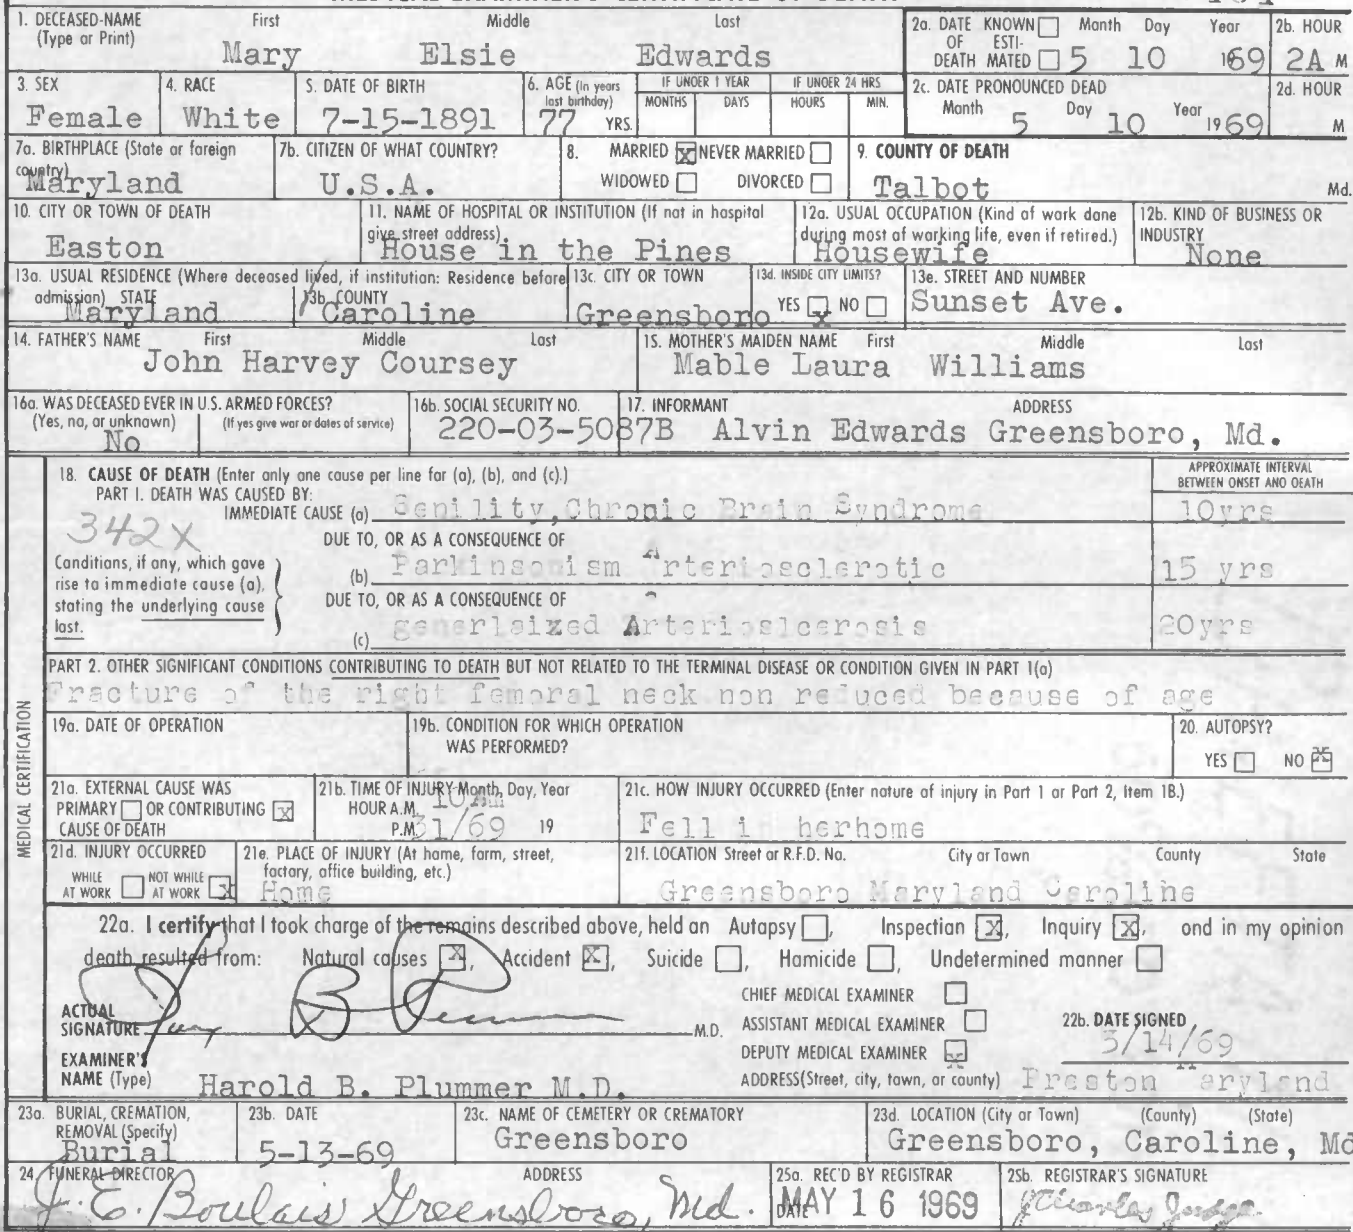 1. DECEASED-NAME (Type or Print) First Middle Last
Mary Elsie Edwards
2a. DATE KNOWN OF ESTI- DEATH MATED Month Day Year
5 10 1969
2b. HOUR
2A M
3. SEX
Female
4. RACE
White
5. DATE OF BIRTH
7-15-1891
6. AGE (In years last birthday)
77 YRS.
IF UNDER 1 YEAR
MONTHS DAYS
IF UNDER 24 HRS
HOURS MIN.
2c. DATE PRONOUNCED DEAD
Month 5 Day 10 Year 1969
2d. HOUR
M
7a. BIRTHPLACE (State or foreign country)
Maryland
7b. CITIZEN OF WHAT COUNTRY?
U.S.A.
8. MARRIED X NEVER MARRIED
WIDOWED DIVORCED
9. COUNTY OF DEATH
Talbot Md.
10. CITY OR TOWN OF DEATH
Easton
11. NAME OF HOSPITAL OR INSTITUTION (If not in hospital give street address)
House in the Pines
12a. USUAL OCCUPATION (Kind of work done during most of working life, even if retired.)
Housewife
12b. KIND OF BUSINESS OR INDUSTRY
None
13a. USUAL RESIDENCE (Where deceased lived, if institution: Residence before admission) STATE
Maryland
13b. COUNTY
Caroline
13c. CITY OR TOWN
Greensboro
13d. INSIDE CITY LIMITS?
YES X NO
13e. STREET AND NUMBER
Sunset Ave.
14. FATHER'S NAME First Middle Last
John Harvey Coursey
15. MOTHER'S MAIDEN NAME First Middle Last
Mable Laura Williams
16a. WAS DECEASED EVER IN U.S. ARMED FORCES?
(Yes, no, or unknown) (If yes give war or dates of service)
No
16b. SOCIAL SECURITY NO.
220-03-5087B
17. INFORMANT ADDRESS
Alvin Edwards Greensboro, Md.
MEDICAL CERTIFICATION
18. CAUSE OF DEATH (Enter only one cause per line for (a), (b), and (c).)
APPROXIMATE INTERVAL BETWEEN ONSET AND DEATH
PART I. DEATH WAS CAUSED BY:
IMMEDIATE CAUSE (a) Senility,Chronic Brain Syndrome 10yrs
342X
DUE TO, OR AS A CONSEQUENCE OF
Conditions, if any, which gave rise to immediate cause (a), stating the underlying cause last.
(b) Parkinsonism Arteriosclerotic 15 yrs
DUE TO, OR AS A CONSEQUENCE OF
(c) generlaized Arterioslcerosis 20yrs
PART 2. OTHER SIGNIFICANT CONDITIONS CONTRIBUTING TO DEATH BUT NOT RELATED TO THE TERMINAL DISEASE OR CONDITION GIVEN IN PART 1(a)
Fracture of the right femoral neck non reduced because of age
19a. DATE OF OPERATION
19b. CONDITION FOR WHICH OPERATION WAS PERFORMED?
20. AUTOPSY?
YES NO X
21a. EXTERNAL CAUSE WAS
PRIMARY OR CONTRIBUTING X
CAUSE OF DEATH
21b. TIME OF INJURY Month, Day, Year
HOUR A.M. 10
P.M. 31/69 19
21c. HOW INJURY OCCURRED (Enter nature of injury in Part 1 or Part 2, Item 18.)
Fell i herhome
21d. INJURY OCCURRED
WHILE AT WORK NOT WHILE AT WORK X
21e. PLACE OF INJURY (At home, farm, street, factory, office building, etc.)
Home
21f. LOCATION Street or R.F.D. No. City or Town County State
Greensboro Maryland Caroline
22a. I certify that I took charge of the remains described above, held an Autopsy , Inspection X, Inquiry X, and in my opinion
death resulted from: Natural causes X, Accident X, Suicide , Homicide , Undetermined manner
ACTUAL SIGNATURE M.D.
CHIEF MEDICAL EXAMINER
ASSISTANT MEDICAL EXAMINER
DEPUTY MEDICAL EXAMINER X
22b. DATE SIGNED
3/14/69
EXAMINER'S NAME (Type) Harold B. Plummer M.D.
ADDRESS(Street, city, town, or county) Preston aryland
23a. BURIAL, CREMATION, REMOVAL (Specify)
Burial
23b. DATE
5-13-69
23c. NAME OF CEMETERY OR CREMATORY
Greensboro
23d. LOCATION (City or Town) (County) (State)
Greensboro, Caroline, Md
24. FUNERAL DIRECTOR ADDRESS
J. E. Boulais Greensboro, Md.
25a. REC'D BY REGISTRAR
DATE MAY 16 1969
25b. REGISTRAR'S SIGNATURE
Charles Judge